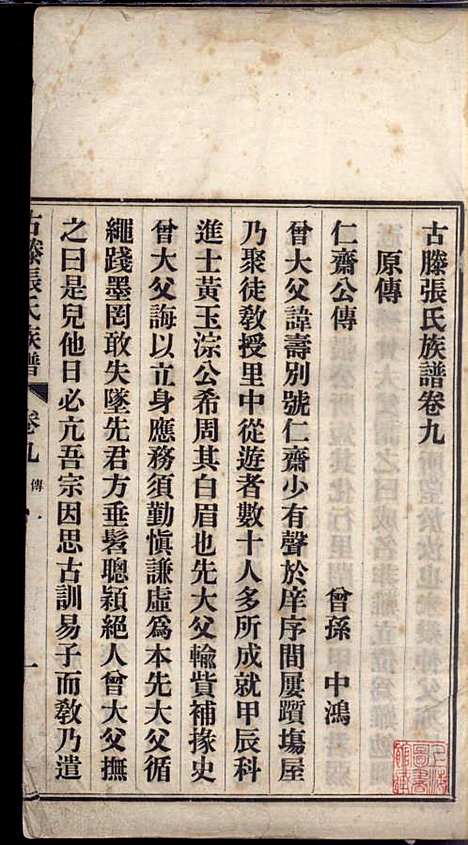 古滕張氏族譜卷九
原傳
仁齋公傳 曾孫 中鴻
曾大父諱壽別號仁齋少有聲於庠序間屢躓塲屋
乃聚徒敎授里中從遊者數十人多所成就甲辰科
進士黃玉淙公希周其白眉也先大父輸貲補掾史
曾大父誨以立身應務須勤愼謙虛爲本先大父循
繩踐墨罔敢失墜先君方垂髫聰穎絕人曾大父撫
之曰是兒他日必亢吾宗因思古訓易子而敎乃遣
古滕張氏族譜 卷九 傳 一